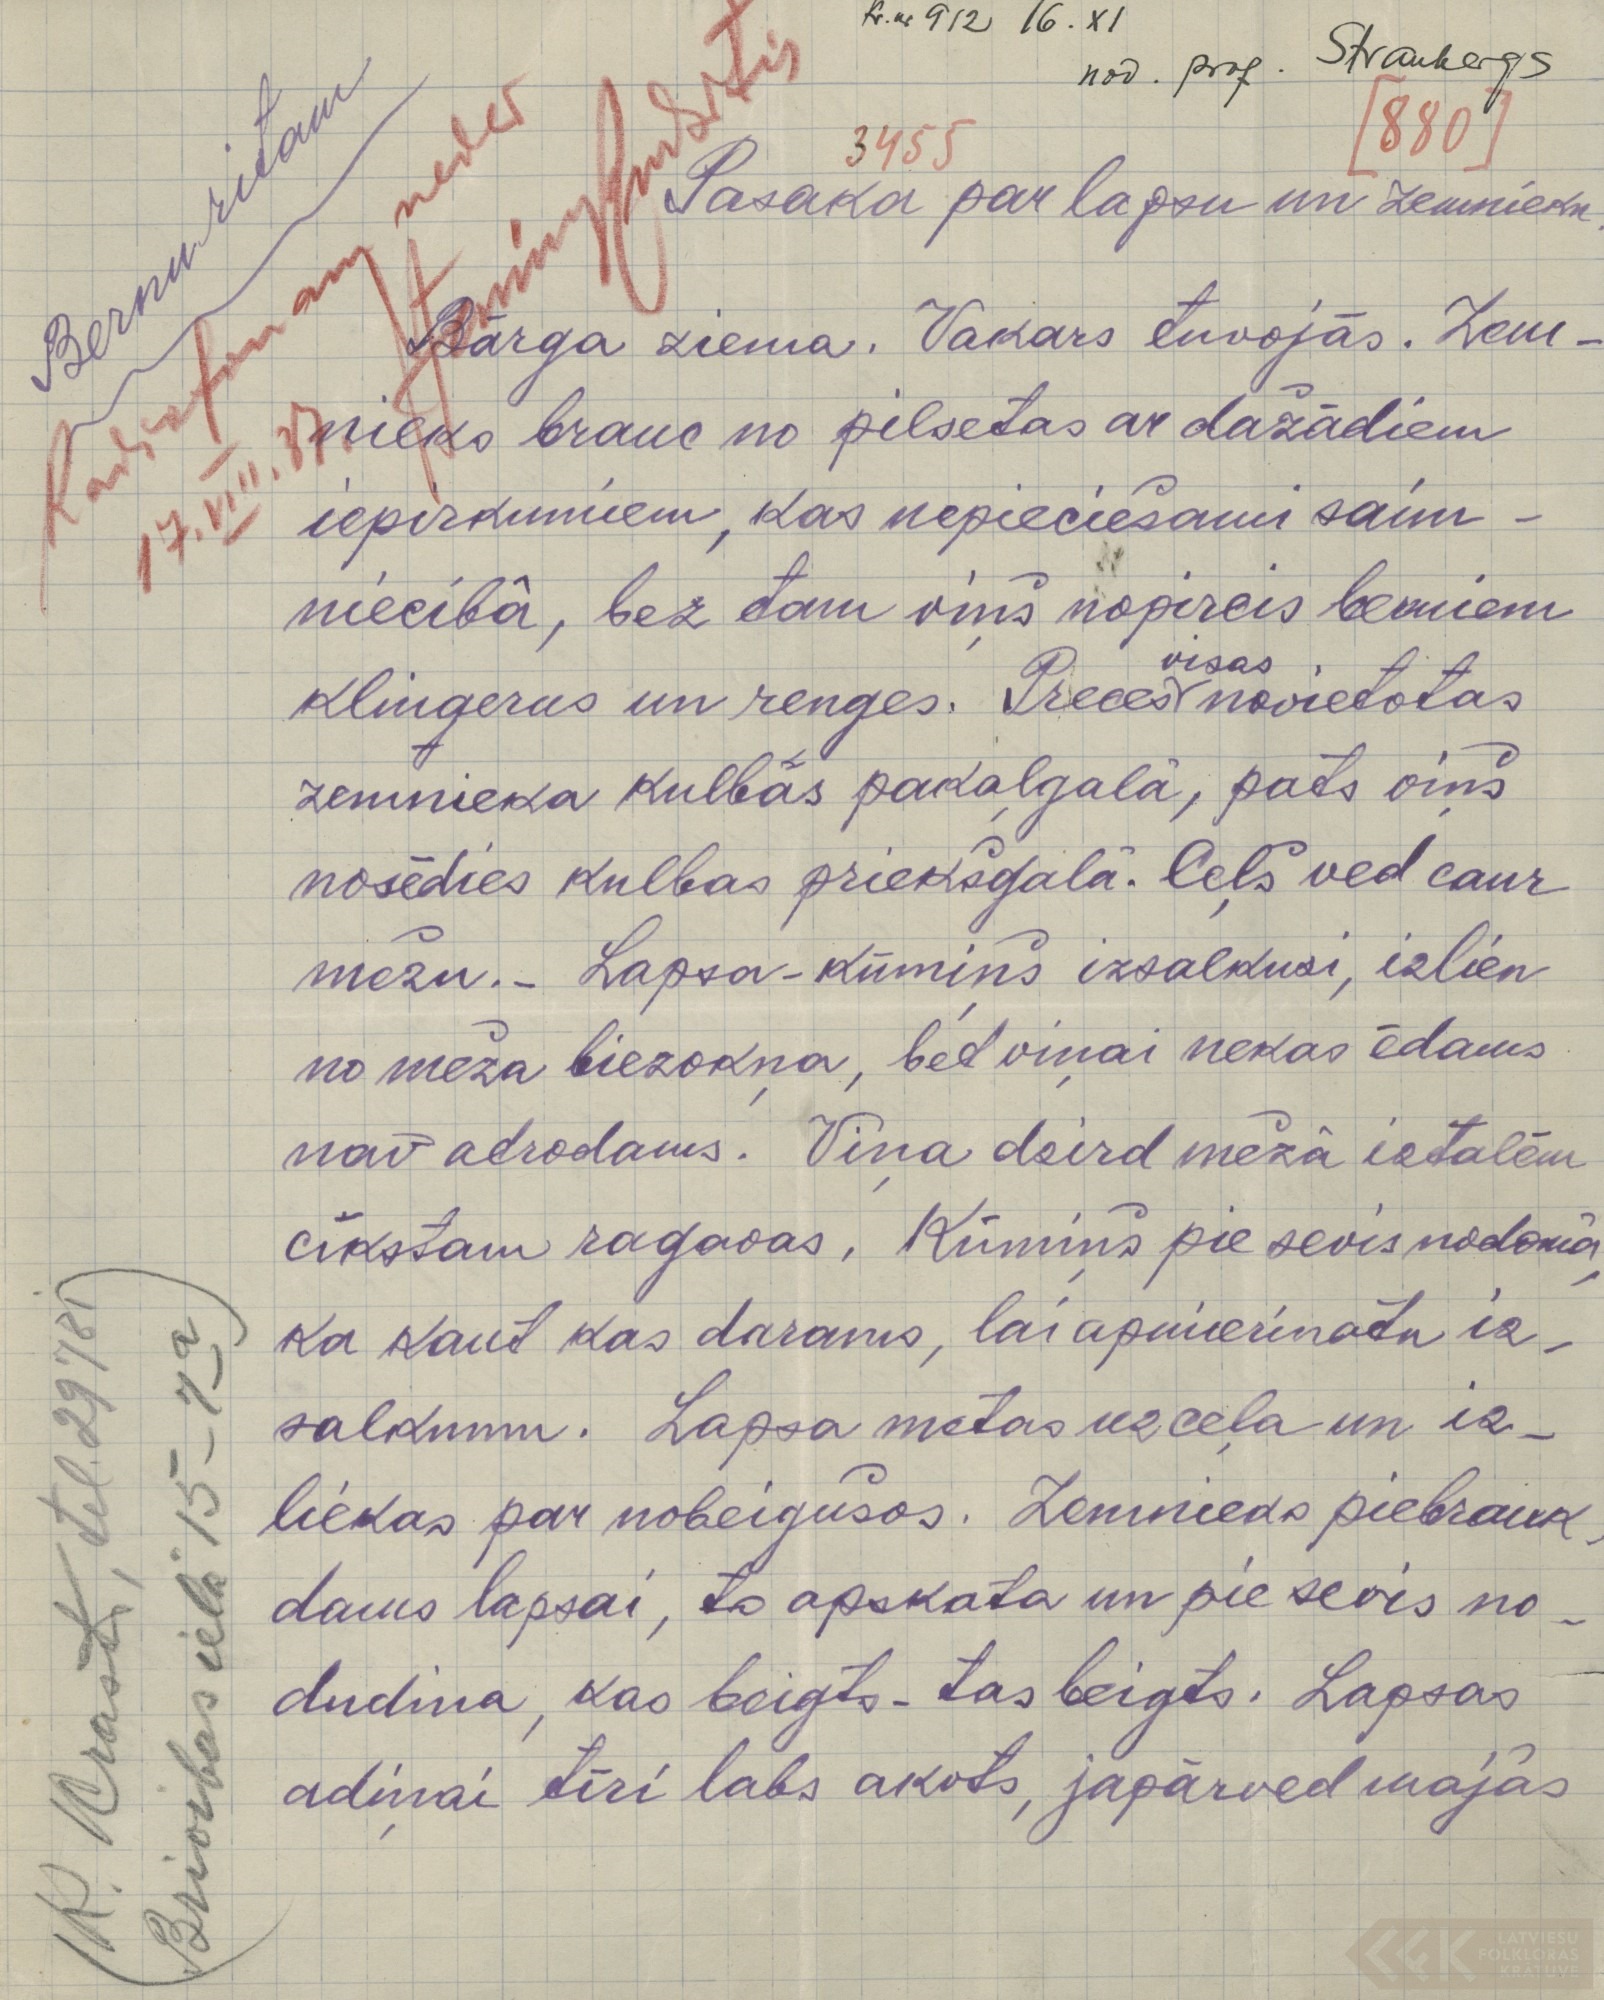 kr. nr 912 16. XI
nod. prof. Straubergs
[880]
3455
Bernu rītam
Radiofonam neder
17.VIII.37.
Pasaka par lapsu un zemnieku.
Bārga ziema. Vakars tuvojās. Zem-
nieks brauc no pilsetas ar dažādiem
iepirkumiem, kas nepieciešami saim-
niecībâ, bez tam viņš nopircis berniem
klingerus un renges. Preces visas novietotas
zemnieka kulbās pakaļgalā, pats viņš
nosēdies kulbas priekšgalā. Ceļš ved caur
mežu. - Lapsa-kūmiņš izsalkusi, izlien
no meža biezokņa, bet viņai nekas ēdams
nav atrodams. Viņa dzird mežâ iztalēm
čīkstam ragavas. Kūmiņš pie sevis nodomā,
ka kaut kas darams, lai apmierinātu iz-
salkumu. Lapsa metas uz ceļa un iz-
liekas par nobeigušos. Zemnieks piebrauk-
dams lapsai, to apskata un pie sevis no-
dudina, kas beigts - tas beigts. Lapsas
adiņai tīri labs akots, japārved majās
(K. Krasts, tel. 29781
Brivibas ielā 15-7a)
LATVIEŠU
FOLKLORAS
KRĀTUVE